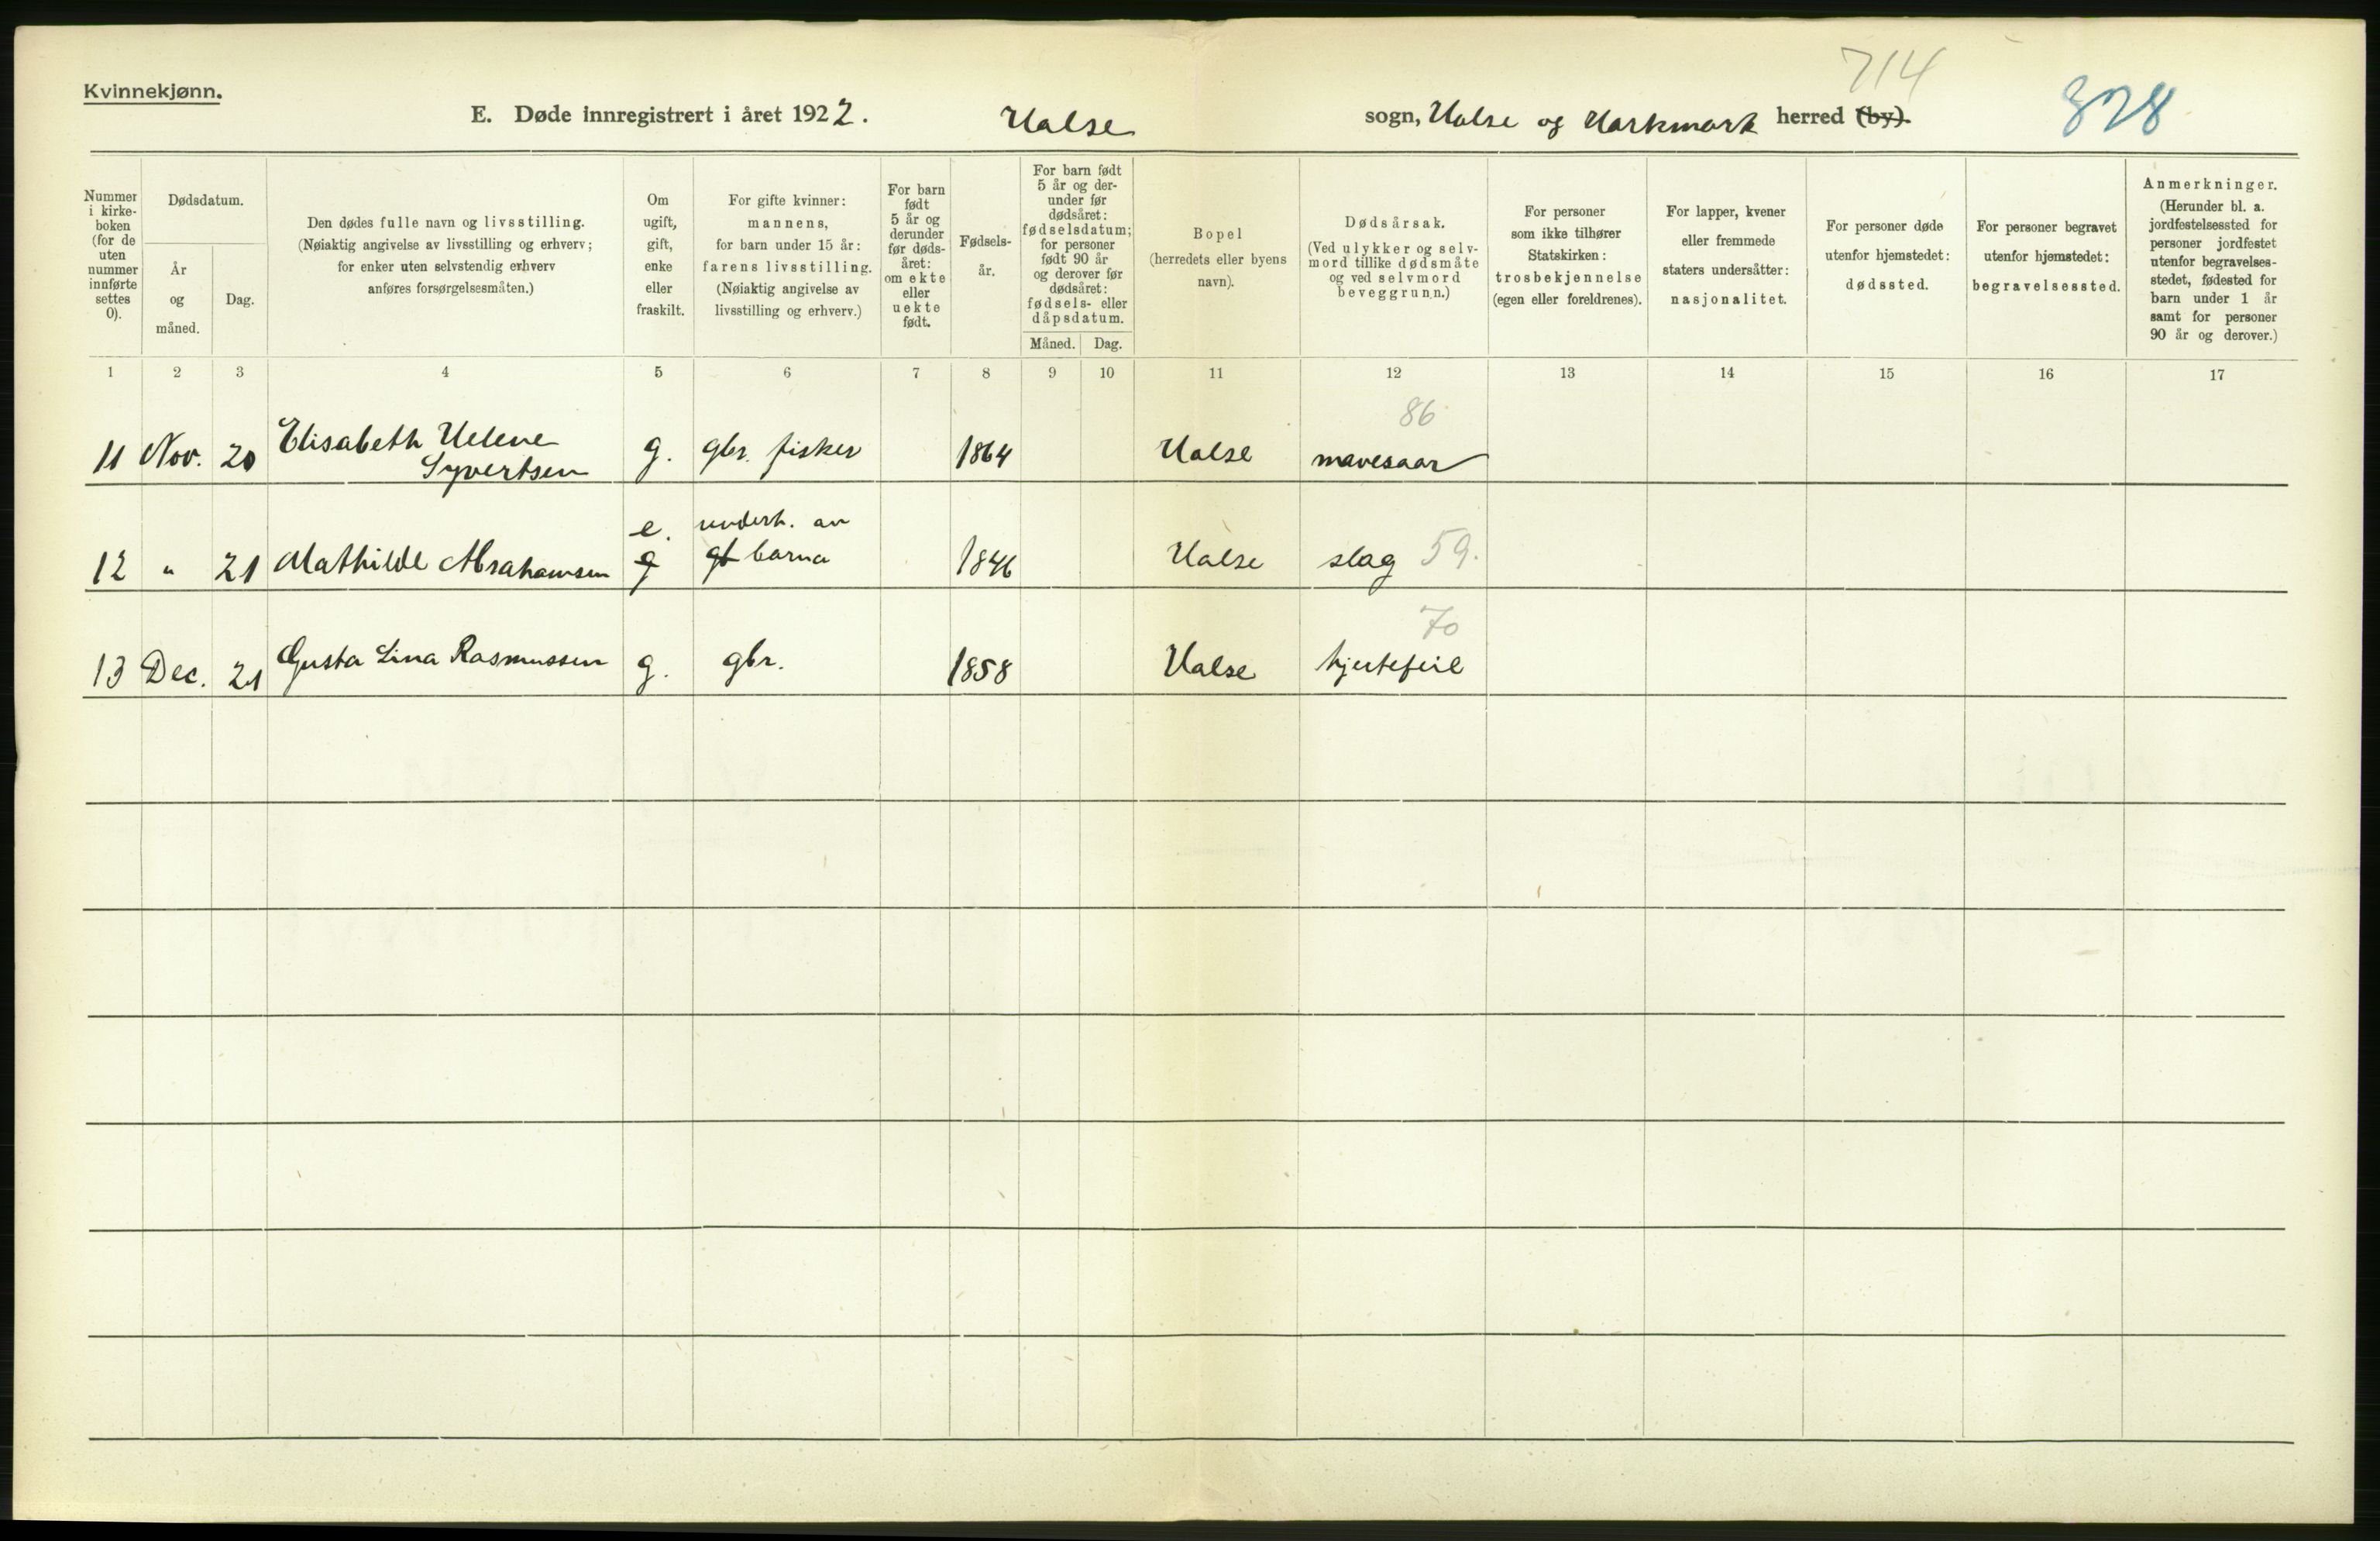 714
Kvinnekjønn.
E. Døde innregistrert i året 1922. Halse sogn, Halse og Harkmark herred (by). 828
Nummer i kirke-boken (for de uten nummer innførte settes 0).
Dødsdatum.
År og måned.
Dag.
Den dødes fulle navn og livsstilling.
(Nøiaktig angivelse av livsstilling og erhverv;
for enker uten selvstendig erhverv
anføres forsørgelsesmåten.)
Om
ugift,
gift,
enke
eller
fraskilt.
For gifte kvinner:
mannens,
for barn under 15 år:
farens livsstilling.
(Nøiaktig angivelse av
livsstilling og erhverv.)
For barn
født
5 år og
derunder
før døds-
året:
om ekte
eller
uekte
født.
Fødsels-
år.
For barn født
5 år og der-
under før
dødsåret:
fødselsdatum;
for personer
født 90 år
og derover før
dødsåret:
fødsels- eller
dåpsdatum.
Måned. Dag.
Bopel
(herredets eller byens
navn).
Dødsårsak.
(Ved ulykker og selv-
mord tillike dødsmåte
og ved selvmord
beveggrunn.)
For personer
som ikke tilhører
Statskirken:
trosbekjennelse
(egen eller foreldrenes).
For lapper, kvener
eller fremmede
staters undersåtter:
nasjonalitet.
For personer døde
utenfor hjemstedet:
dødssted.
For personer begravet
utenfor hjemstedet:
begravelsessted.
Anmerkninger.
(Herunder bl. a.
jordfestelsessted for
personer jordfestet
utenfor begravelses-
stedet, fødested for
barn under 1 år
samt for personer
90 år og derover.)
1 2 3 4 5 6 7 8 9 10 11 12 13 14 15 16 17
86
11 Nov. 20 Elisabeth Helene
Syvertsen g. gbr. fisker 1864 Halse mavesaar
e. underh. av
12 " 21 Mathilde Abrahamsen g gb barna 1846 Halse slag 59.
70
13 Dec. 21 Gusta Lina Rasmussen g. gbr. 1858 Halse hjertefeil